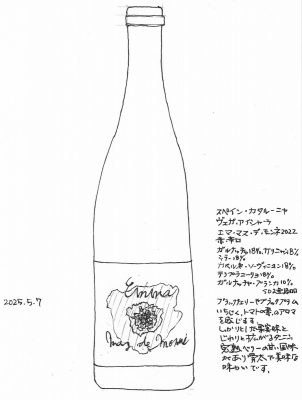 Emma
mas de monné
2025.5.7
スペイン・カタルーニャ
ヴェガ・アイシャーラ
エマ・マス・デ・モンネ2022
赤・辛口
ガルナッチャ18%, カリニャン18%
シラー18%
カベルネ・ソーヴィニヨン18%
テンプラニーリョ18%
ガルナッチャ・ブランカ10%
ブラックチェリーやブラックプラム
いちじく、トマトの葉のアロマ
を感じます。
しっかりした果実味と
じわりと広がるタンニン
完熟ベリーの甘い風味
があり骨太で美味な
味わいです。